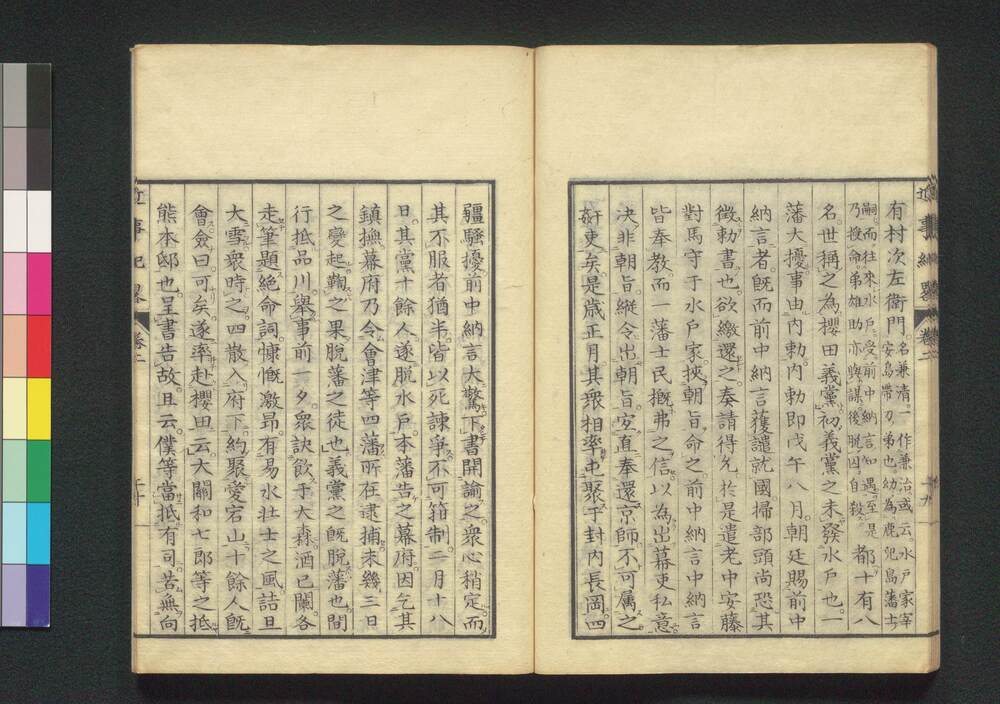 近事紀畧 卷二 十九
有村次左衞門
名兼清一作兼治或云水戸家宰安島帶刀弟也幼為鹿兒島藩士
嗣而往來水戸受前中納言知遇至是乃授命弟雄助亦與謀後脱囚自殺
都十有八
名世稱之為櫻田義黨初義黨之未發水戸也一
藩大擾事由内勅内勅即戊午八月朝廷賜前中
納言者既而前中納言獲譴就國掃部頭尚恐其
徴勅書也欲繳還之奏請得允於是遣老中安藤
對馬守于水戸家挾朝旨命之前中納言中納言
皆奉教而一藩士民慨弗之信以為出幕吏私意
決非朝旨縱令出朝旨安直奉還京師不可属之
奸吏矣是歳正月其衆相率屯聚于封内長岡四
疆騷擾前中納言大驚下書開諭之衆心稍定而
其不服者猶半皆以死諫爭不可箝制二月十八
日其黨十餘人遂脱水戸本藩告之幕府因乞其
鎮撫幕府乃令會津等四藩所在逮捕未幾三日
之變起鞫之果脱藩之徒也義黨之既脱藩也間
行抵品川舉事前一夕衆訣飲于大森酒已闌各
走筆題絶命詞慷慨激昂有易水壯士之風詰旦
大雪衆時之四散入府下約聚愛宕山十餘人既
會僉曰可矣遂率赴櫻田云大關和七郎等之抵
熊本邸也呈書告故且云僕等當抵有司若無向
近事紀畧 卷二 二十